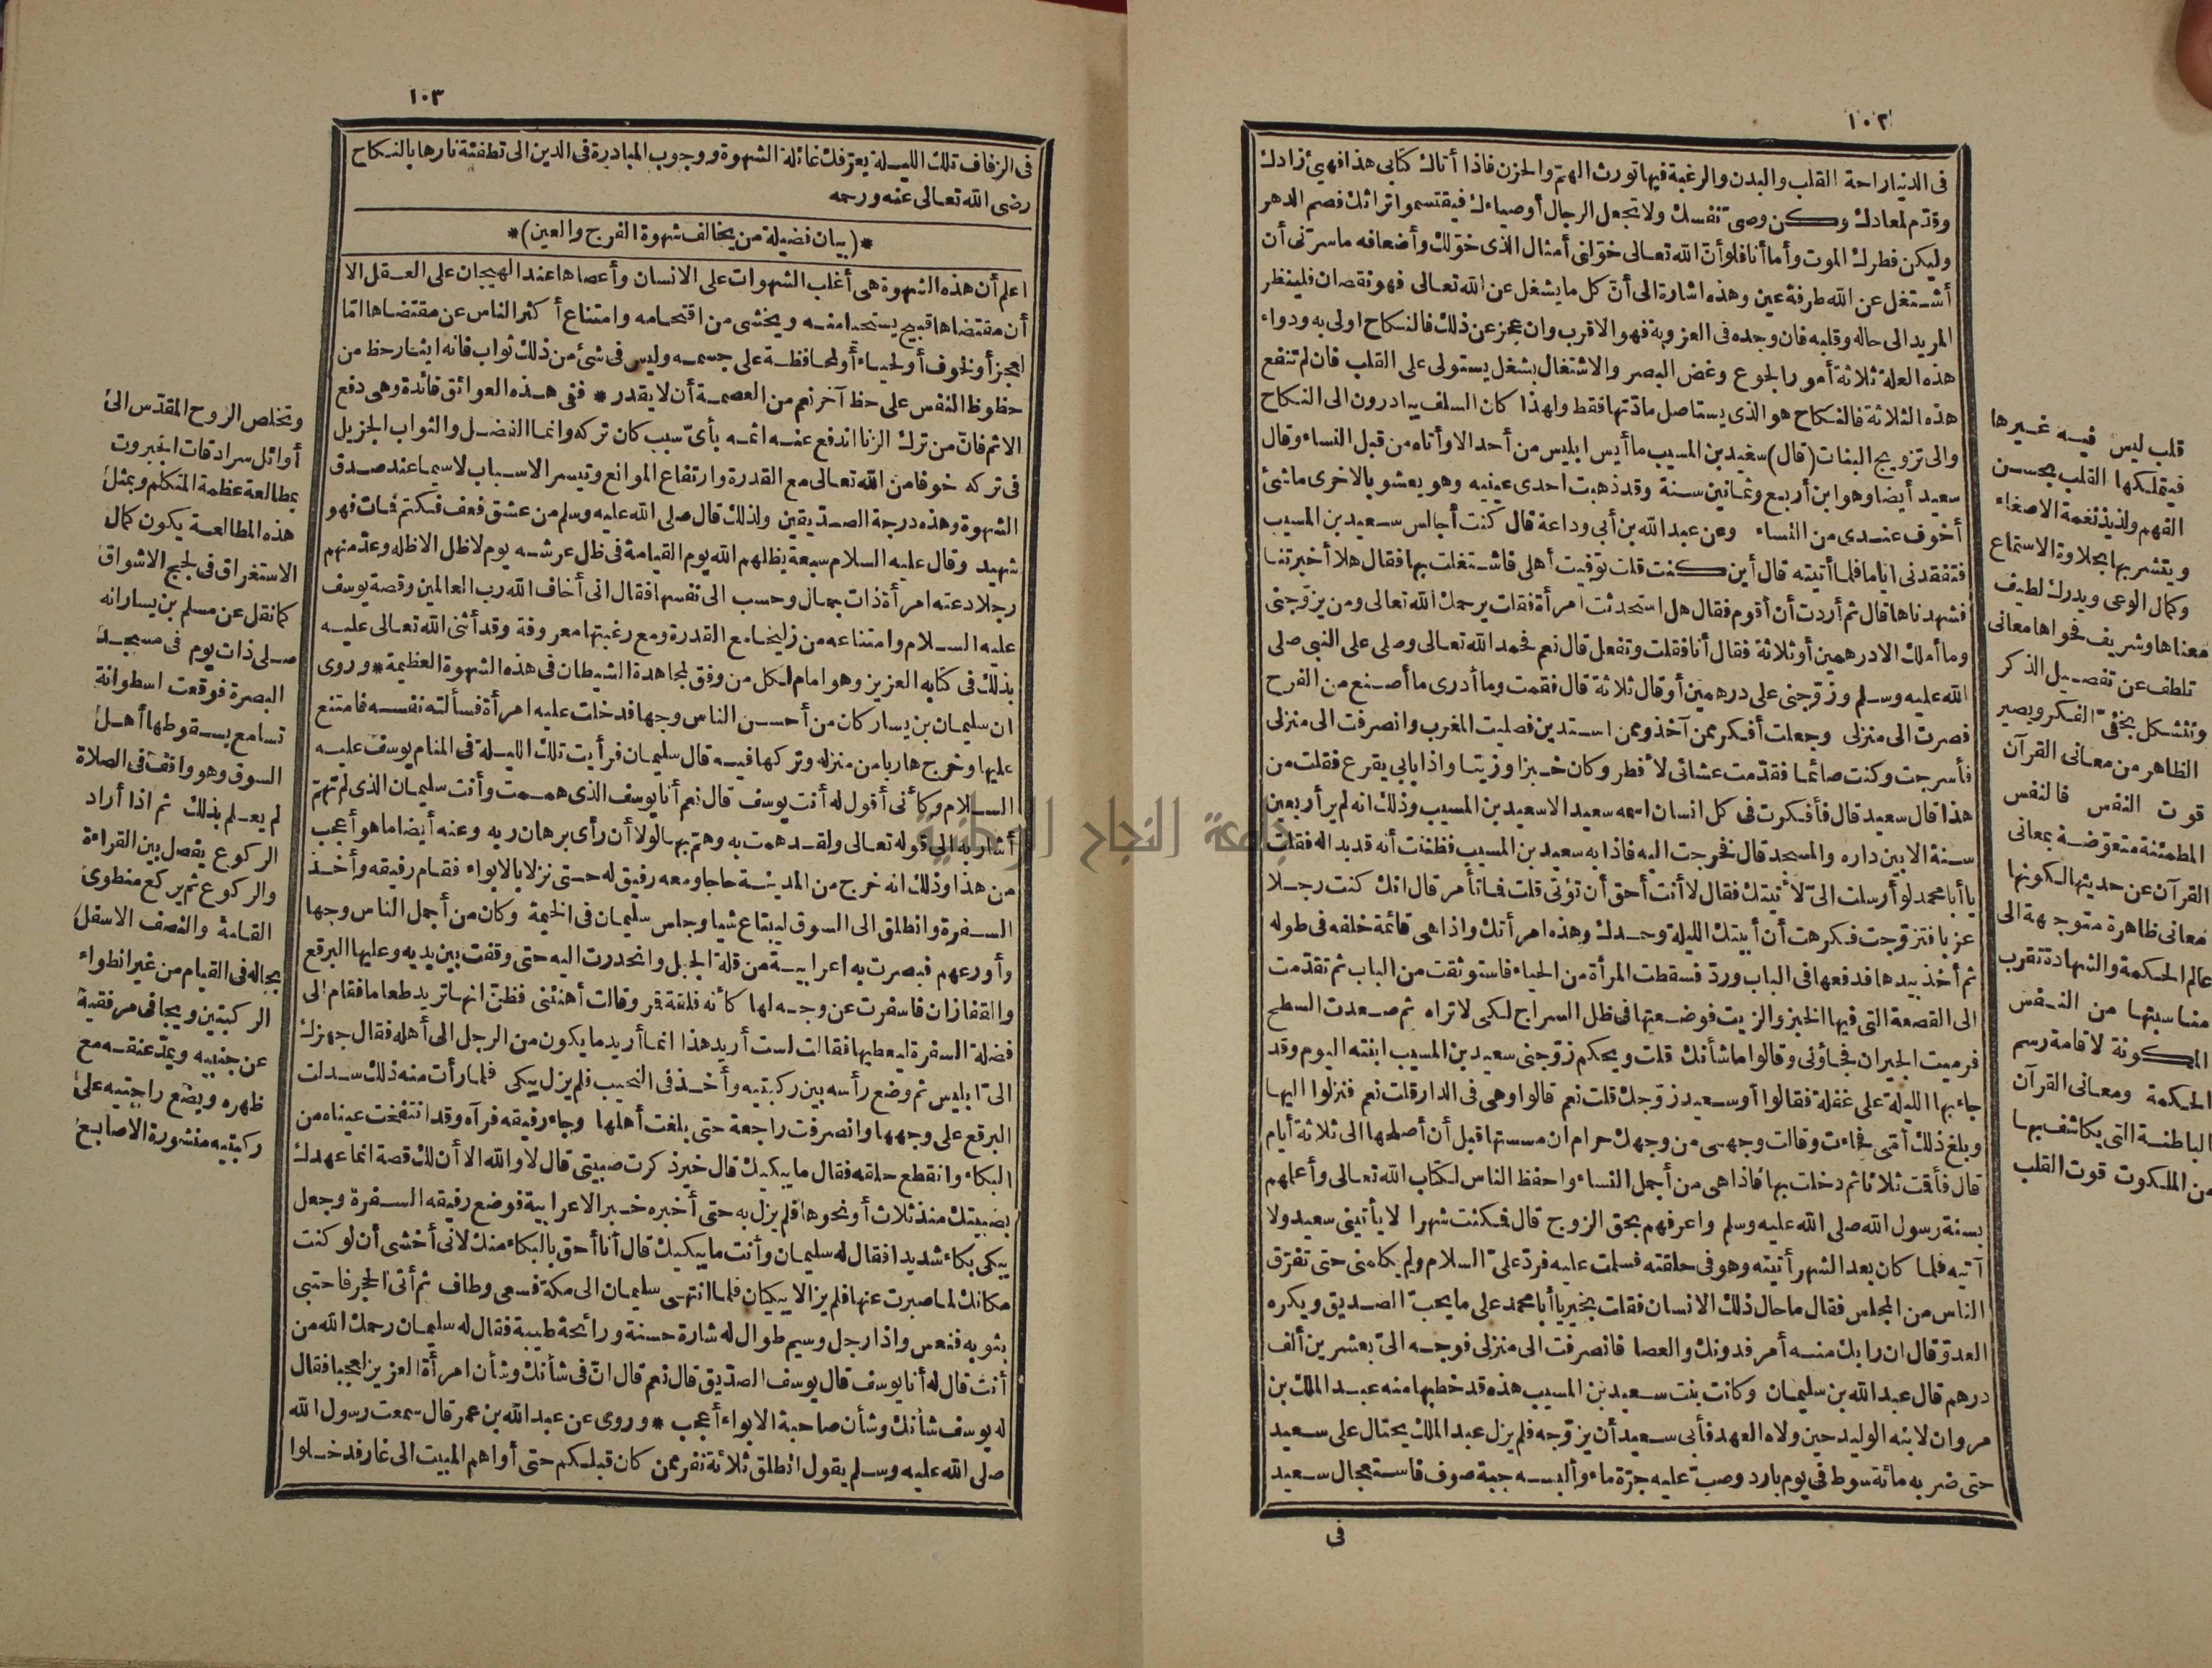 ١٠٢
فى الدنيا راحة القلب والبدن والرغبة فيها تورث الهمّ والحزن فاذا أتاك كتابى هذا فهيئ زادك
وقدّم لمعادك وكن وصىّ نفسك ولا تجعل الرجال أوصياءك فيقتسموا تراثك فصم الدهر
وليكن فطرك الموت وأما أنا فلو أنّ الله تعالى خوّلنى أمثال الذى خوّلك وأضعافه ما سرّنى أن
أشتغل عن الله طرفة عين وهذه اشارة الى أنّ كل ما يشغل عن الله تعالى فهو نقصان فلينظر
المريد الى حاله وقلبه فان وجده فى العزوبة فهو الاقرب وان عجز عن ذلك فالنكاح اولى به ودواء
هذه العلة ثلاثة أمور الجوع وغض البصر والاشتغال بشغل يستولى على القلب فان لم تنفع
هذه الثلاثة فالنكاح هو الذى يستأصل مادّتها فقط ولهذا كان السلف يبادرون الى النكاح
والى تزويج البنات (قال) سعيد بن المسيب ما أيس ابليس من أحد الا وأتاه من قبل النساء وقال
سعيد أيضا وهو ابن أربع وثمانين سنة وقد ذهبت احدى عينيه وهو يعشو بالاخرى ما شئ
أخوف عندى من النساء وعن عبد الله بن أبى وداعة قال كنت أجالس سعيد بن المسيب
فتفقدنى اياما فلما أتيته قال أين كنت قلت توفيت أهلى فاشتغلت بها فقال هلا أخبرتنا
فشهدناها قال ثم أردت أن أقوم فقال هل استحدثت امرأة فقلت يرحمك الله تعالى ومن يزوّجنى
وما أملك الا درهمين أو ثلاثة فقال أنا فقلت وتفعل قال نعم فحمد الله تعالى وصلى على النبى صلى
الله عليه وسلم وزوّجنى على درهمين أو قال ثلاثة قال فقمت وما أدرى ما أصنع من الفرح
فصرت الى منزلى وجعلت أفكر ممن آخذ وممن استدين فصليت المغرب وانصرفت الى منزلى
فأسرجت وكنت صائما فقدّمت عشائى لأفطر وكان خبزا وزيتا واذا بابى يقرع فقلت من
هذا قال سعيد قال فأفكرت فى كل انسان اسمه سعيد الا سعيد بن المسيب وذلك انه لم ير أربعين
سنة الا بين داره والمسجد قال فخرجت اليه فاذا به سعيد بن المسيب فظننت أنه قد بدا له فقلت
يا أبا محمد لو أرسلت الىّ لأتيتك فقال لا أنت أحق أن تؤتى قلت فما تأمر قال انك كنت رجلا
عزبا فتزوّجت فكرهت أن أبيتك الليلة وحدك وهذه امرأتك واذا هى قائمة خلفه فى طوله
ثم أخذ بيدها فدفعها فى الباب وردّ فسقطت المرأة من الحياء فاستوثقت من الباب ثم تقدّمت
الى القصعة التى فيها الخبز والزيت فوضعتها فى ظل السراج لكى لا تراه ثم صعدت السطح
فرميت الجيران فجاؤنى وقالوا ما شأنك قلت ويحكم زوّجنى سعيد بن المسيب ابنته اليوم وقد
جاء بها الليلة على غفلة فقالوا أو سعيد زوّجك قلت نعم قالوا وهى فى الدار قلت نعم فنزلوا اليها
وبلغ ذلك أمّى فجاءت وقالت وجهى من وجهك حرام ان مسستها قبل أن أصلحها الى ثلاثة أيام
قال فأقمت ثلاثا ثم دخلت بها فاذا هى من أجمل النساء واحفظ الناس لكتاب الله تعالى وأعلمهم
بسنة رسول الله صلى الله عليه وسلم واعرفهم بحق الزوج قال فمكثت شهرا لا يأتينى سعيد ولا
آتيه فلما كان بعد الشهر أتيته وهو فى حلقته فسلمت عليه فردّ علىّ السلام ولم يكلمنى حتى تفرّق
الناس من المجلس فقال ما حال ذلك الانسان فقلت بخير يا أبا محمد على ما يحبّ الصديق ويكره
العدوّ قال ان رابك منه أمر فدونك والعصا فانصرفت الى منزلى فوجه الىّ بعشرين ألف
درهم قال عبد الله بن سليمان وكانت بنت سعيد بن المسيب هذه قد خطبها منه عبد الملك بن
مروان لابنه الوليد حين ولاه العهد فأبى سعيد أن يزوّجه فلم يزل عبد الملك يحتال على سعيد
حتى ضربه مائة سوط فى يوم بارد وصب عليه جرّة ماء وألبسه جبة صوف فاستعجال سعيد
فى
قلب ليس فيه غيرها
فيتملكها القلب بحسن
الفهم ولذيذ نغمة الاصغاء
ويتشربها بحلاوة الاستماع
وكمال الوعى ويدرك لطيف
معناها وشريف فحواها معانى
تلطف عن تفصيل الذكر
وتتشكل بخفىّ الفكر ويصير
الظاهر من معانى القرآن
قوت النفس فالنفس
المطمئنة متعوّضة بمعانى
القرآن عن حديثها لكونها
معانى ظاهرة متوجهة الى
عالم الحكمة والشهادة تقرب
مناسبتها من النفس
المكونة لاقامة رسم
الحكمة ومعانى القرآن
الباطنة التى يكاشف بها
من الملكوت قوت القلب
١٠٣
فى الزفاف تلك الليلة يعرّفك غائلة الشهوة ووجوب المبادرة فى الدين الى تطفئة نارها بالنكاح
رضى الله تعالى عنه ورحمه
*(بيان فضيلة من يخالف شهوة الفرج والعين)*
اعلم أن هذه الشهوة هى أغلب الشهوات على الانسان وأعصاها عند الهيجان على العقل الا
أن مقتضاها قبيح يستحيا منه ويخشى من اقتحامه وامتناع أكثر الناس عن مقتضاها امّا
لعجز أو لخوف أو لحياء أو لمحافظة على جسمه وليس فى شئ من ذلك ثواب فانه ايثار حظ من
حظوظ النفس على حظ آخر نعم من العصمة أن لا يقدر * ففى هذه العوائق فائدة وهى دفع
الاثم فانّ من ترك الزنا اندفع عنه اثمه بأىّ سبب كان تركه وانما الفضل والثواب الجزيل
فى تركه خوفا من الله تعالى مع القدرة وارتفاع الموانع وتيسر الاسباب لا سيما عند صدق
الشهوة وهذه درجة الصدّيقين ولذلك قال صلى الله عليه وسلم من عشق فعف فكتم فمات فهو
شهيد وقال عليه السلام سبعة يظلهم الله يوم القيامة فى ظل عرشه يوم لا ظل الا ظله وعدّ منهم
رجلا دعته امرأة ذات جمال وحسب الى نفسها فقال انى أخاف الله رب العالمين وقصة يوسف
عليه السلام وامتناعه من زليخا مع القدرة ومع رغبتها معروفة وقد أثنى الله تعالى عليه
بذلك فى كتابه العزيز وهو امام لكل من وفق لمجاهدة الشيطان فى هذه الشهوة العظيمة * وروى
ان سليمان بن يسار كان من أحسن الناس وجها فدخلت عليه امرأة فسألته نفسه فامتنع
عليها وخرج هاربا من منزله وتركها فيه قال سليمان فرأيت تلك الليلة فى المنام يوسف عليه
السلام وكأنى أقول له أنت يوسف قال نعم أنا يوسف الذى هممت وأنت سليمان الذى لم تهمّ
أشار به الى قوله تعالى ولقد همت به وهمّ بها لولا أن رأى برهان ربه وعنه أيضا ما هو أعجب
من هذا وذلك انه خرج من المدينة حاجا ومعه رفيق له حتى نزلا بالابواء فقام رفيقه وأخذ
السفرة وانطلق الى السوق ليبتاع شيا وجلس سليمان فى الخيمة وكان من أجمل الناس وجها
وأورعهم فبصرت به اعرابية من قلة الجبل وانحدرت اليه حتى وقفت بين يديه وعليها البرقع
والقفازان فاسفرت عن وجه لها كأنه فلقة قمر وقالت أهنئنى فظنّ انها تريد طعاما فقام الى
فضلة السفرة ليعطيها فقالت لست أريد هذا انما أريد ما يكون من الرجل الى أهله فقال جهزك
الىّ ابليس ثم وضع رأسه بين ركبتيه وأخذ فى النحيب فلم يزل يبكى فلما رأت منه ذلك سدلت
البرقع على وجهها وانصرفت راجعة حتى بلغت أهلها وجاء رفيقه فرآه وقد انتفخت عيناه من
البكاء وانقطع حلقه فقال ما يبكيك قال خير ذكرت صبيتى قال لا والله الا أن لك قصة انما عهدك
بصبيتك منذ ثلاث أو نحوها فلم يزل به حتى أخبره خبر الاعرابية فوضع رفيقه السفرة وجعل
يبكى بكاء شديدا فقال له سليمان وأنت ما يبكيك قال أنا أحق بالبكاء منك لانى أخشى أن لو كنت
مكانك لما صبرت عنها فلم يزالا يبكيان فلما انتهى سليمان الى مكة فسعى وطاف ثم أتى الحجر فاحتبى
بثوبه فنعس واذا رجل وسيم طوال له شارة حسنة ورائحة طيبة فقال له سليمان رحمك الله من
أنت قال له أنا يوسف قال يوسف الصدّيق قال نعم قال انّ فى شأنك وشأن امرأة العزيز لعجبا فقال
له يوسف شأنك وشأن صاحبة الابواء أعجب * وروى عن عبد الله بن عمر قال سمعت رسول الله
صلى الله عليه وسلم يقول انطلق ثلاثة نفر ممن كان قبلكم حتى أواهم المبيت الى غار فدخلوا
وتخلص الروح المقدّس الى
أوائل سرادقات الجبروت
بمطالعة عظمة المتكلم وبمثل
هذه المطالعة يكون كمال
الاستغراق فى لجج الاشواق
كما نقل عن مسلم بن يسار انه
صلى ذات يوم فى مسجد
البصرة فوقعت اسطوانة
تسامع بسقوطها أهل
السوق وهو واقف فى الصلاة
لم يعلم بذلك ثم اذا أراد
الركوع يفصل بين القراءة
والركوع ثم يركع منطوى
القامة والنصف الاسفل
بحاله فى القيام من غير انطواء
الركبتين ويجافى مرفقيه
عن جنبيه ويمدّ عنقه مع
ظهره ويضع راحتيه على
ركبتيه منشورة الاصابع
جامعة النجاح الوطنية